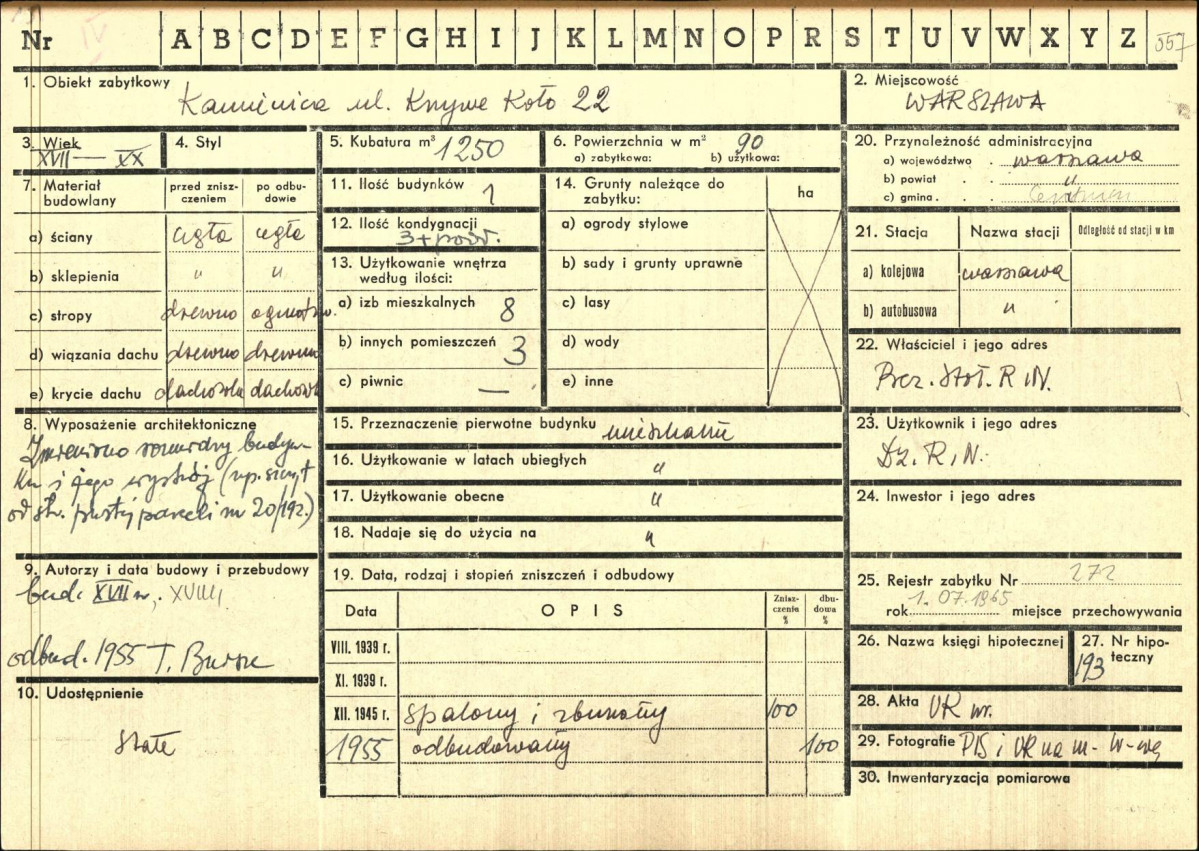 Nr A B C D E F G H I J K L M N O P R S T U V W X Y Z 557
IV
1. Obiekt zabytkowy
Kamienica ul. Krzywe Koło 22
2. Miejscowość
WARSZAWA
3. Wiek
XVII — XX
4. Styl
5. Kubatura m³ 1250
6. Powierzchnia w m² 90
a) zabytkowa: b) użytkowa:
7. Materiał budowlany
przed zniszczeniem
po odbudowie
a) ściany cegła cegła
b) sklepienia " "
c) stropy drewno ogniotrw.
d) wiązania dachu drewno drewno
e) krycie dachu dachówka dachówk
8. Wyposażenie architektoniczne
Zmieniono rozmiary budyn-
ku i jego wystrój (np. szczyt
od str. pustej parceli nr 20/192.)
9. Autorzy i data budowy i przebudowy
bud. XVII w., XVIII,
odbud. 1955 T. Bursze
10. Udostępnienie
stałe
11. Ilość budynków 1
12. Ilość kondygnacji
3+podd.
13. Użytkowanie wnętrza
według ilości:
a) izb mieszkalnych 8
b) innych pomieszczeń 3
c) piwnic —
14. Grunty należące do
zabytku:
ha
a) ogrody stylowe
b) sady i grunty uprawne
c) lasy
d) wody
e) inne
15. Przeznaczenie pierwotne budynku mieszkalne
16. Użytkowanie w latach ubiegłych "
17. Użytkowanie obecne "
18. Nadaje się do użycia na "
19. Data, rodzaj i stopień zniszczeń i odbudowy
Data OPIS Znisz-czeniu % dbu-dowa %
VIII. 1939 r.
XI. 1939 r.
XII. 1945 r. spalony i zburzony 100
1955 odbudowany 100
20. Przynależność administracyjna
a) województwo . warszawa
b) powiat . . "
c) gmina . . .
21. Stacja Nazwa stacji Odległość od stacji w km
a) kolejowa warszawa
b) autobusowa "
22. Właściciel i jego adres
Prez. Stoł. R.N.
23. Użytkownik i jego adres
Dz. R.N.
24. Inwestor i jego adres
25. Rejestr zabytku Nr 272
rok 1.07.1965 miejsce przechowywania
26. Nazwa księgi hipotecznej
27. Nr hipo-
teczny
193
28. Akta UR w.
29. Fotografie PIS i UR na m. W-wę
30. Inwentaryzacja pomiarowa